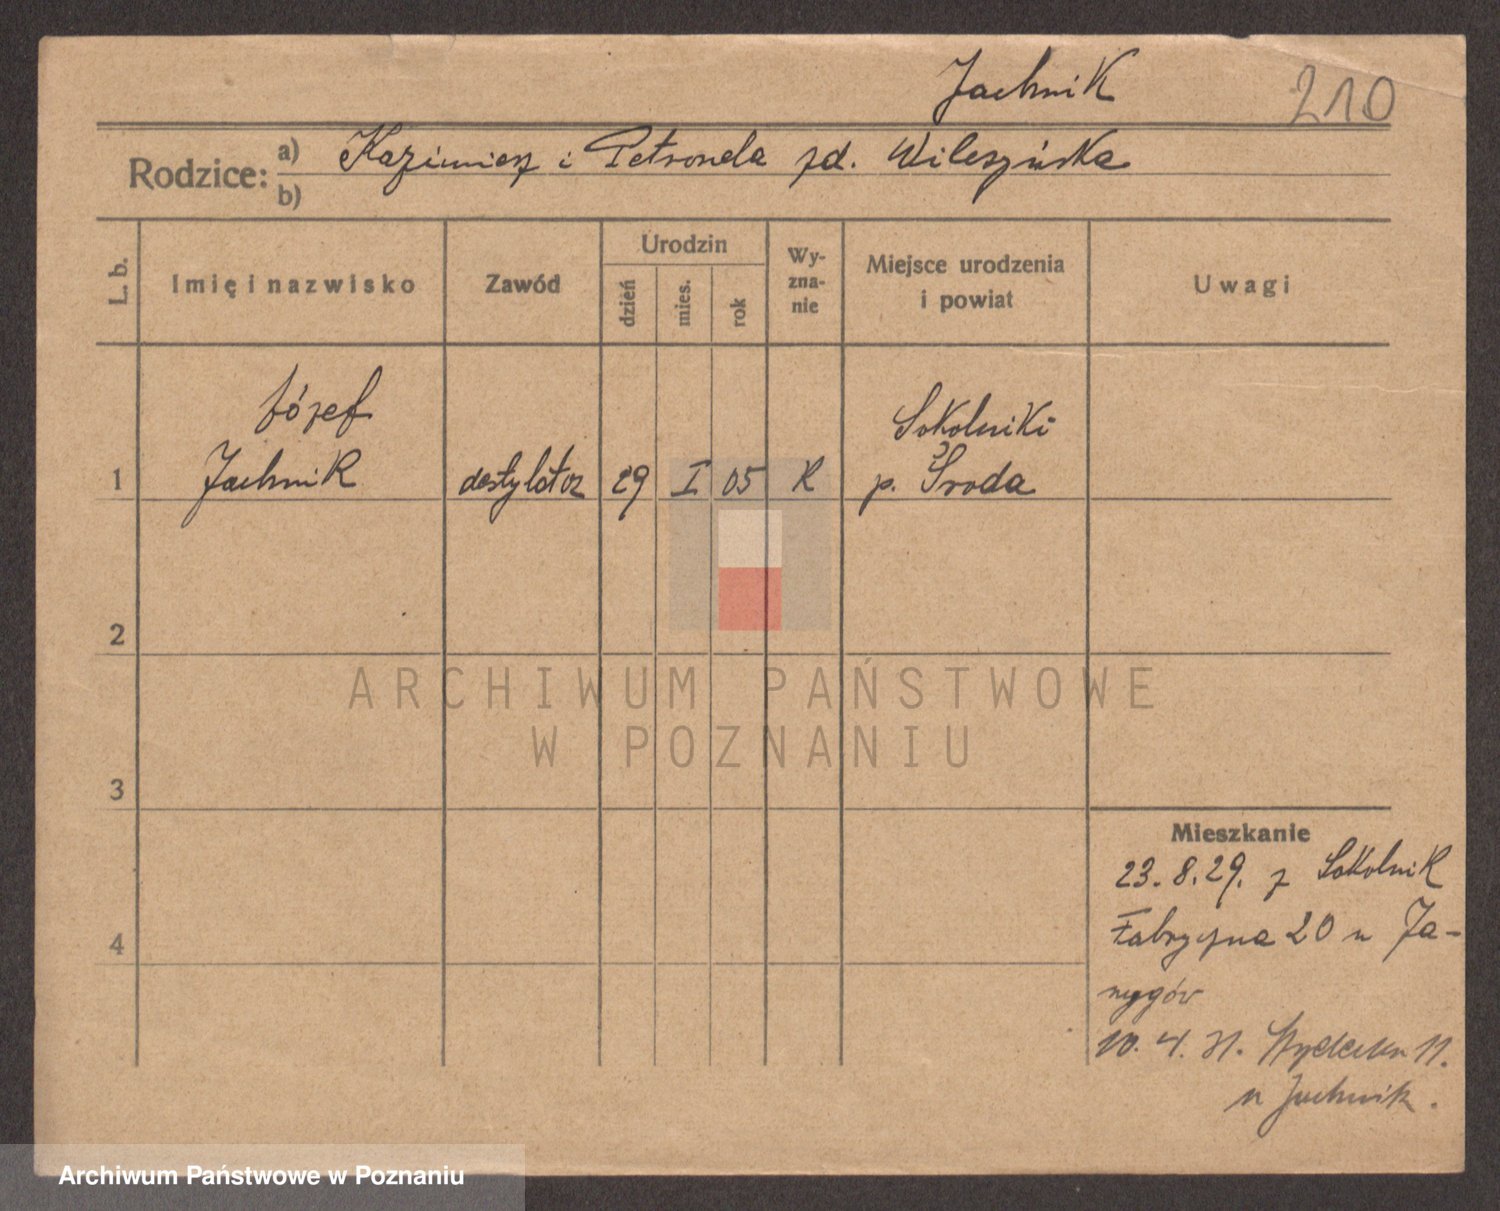 Jachnik
210
Rodzice: a) Kazimierz i Petronela zd. Wileszyńska
b)
L. b.
Imię i nazwisko
Zawód
Urodzin
dzień
mies.
rok
Wy-
zna-
nie
Miejsce urodzenia
i powiat
Uwagi
Józef
Sokolniki
1 Jachnik destylator 29 I 05 K p. Środa
2
ARCHIWUM PAŃSTWOWE
W POZNANIU
3
Mieszkanie
23.8.29. z Sokolnik
4
Fabryczna 20 u Ja-
nygów
10.4.31. 11.
u Jachnik.
Archiwum Państwowe w Poznaniu